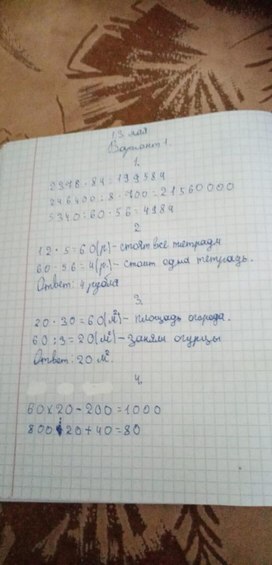 13 мая
Вариант 1
1.
2378 · 84 = 199584
246400 : 8 · 700 = 21560000
5340 : 60 · 56 = 4984
2
12 · 5 = 60 (р) - стоят все тетради
60 - 56 = 4 (р.) - стоит одна тетрадь.
Ответ: 4 рубля
3.
20 · 30 = 60 (м²) - площадь огорода.
60 : 3 = 20 (м²) - заняли огурцы
Ответ: 20 м².
4.
60 x 20 - 200 = 1000
800 : 20 + 40 = 80